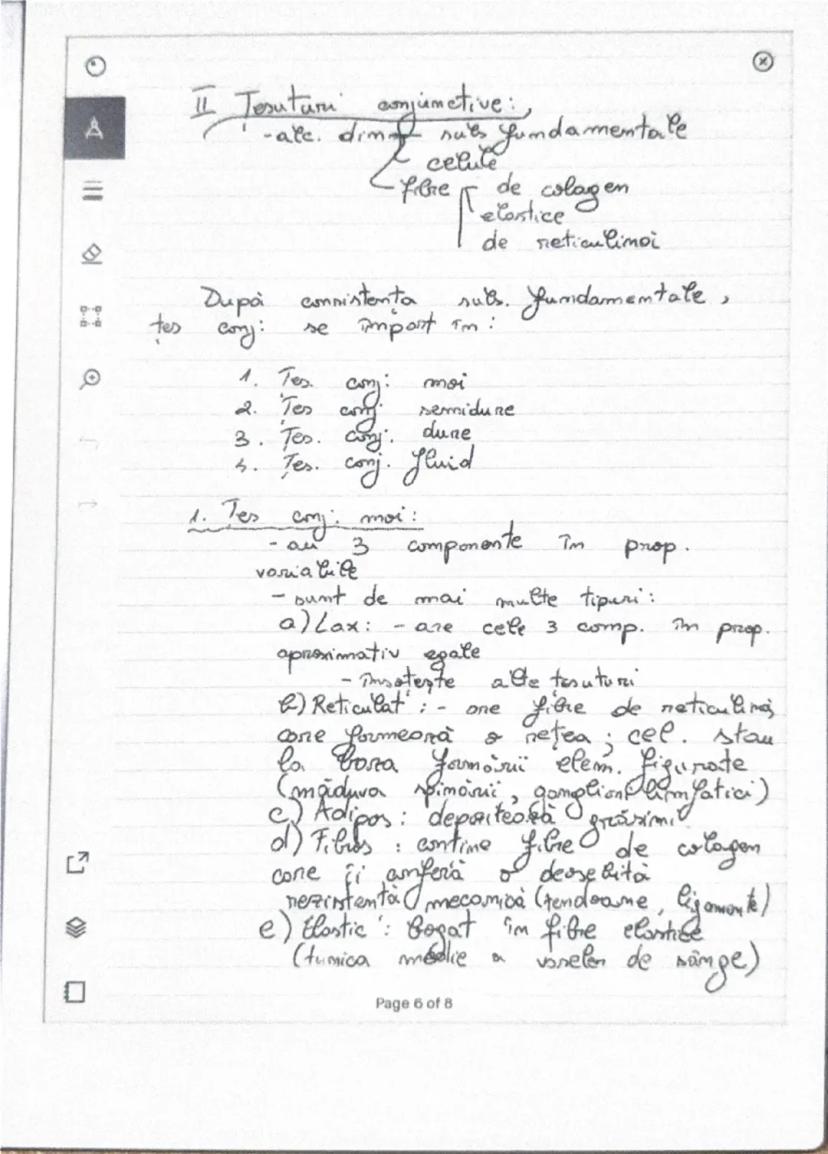 II Țesuturi conjunctive:
- alc. din subs fundamentale
celule
fibre de colagen
elastice
de reticulinai
După consistența subs. fundamentale,
țes conj: se împart în:
1. Țes. conj: moi
2. Țes conj semidure
3. Țes. conj. dure
4. Țes. conj. fluid
1. Țes conj: moi:
- au 3 componente în prop.
variabile
- sunt de mai multe tipuri:
a) Lax: - are cele 3 comp. în prop.
aproximativ egale
- însoțește alte țesuturi
b) Reticulat: - are fibre de reticulină,
care formează o rețea; cel. stau
la baza formării elem. figurate
(măduva spinării, ganglioni limfatici)
c) Adipos: depozitează grăsimi
d) Fibros: conține fibre de colagen
care îi conferă o deosebită
rezistență mecanică (tendoane, ligamente)
e) Elastic: bogat în fibre elastice
(tunica medie a vaselor de sânge)
Page 6 of 8